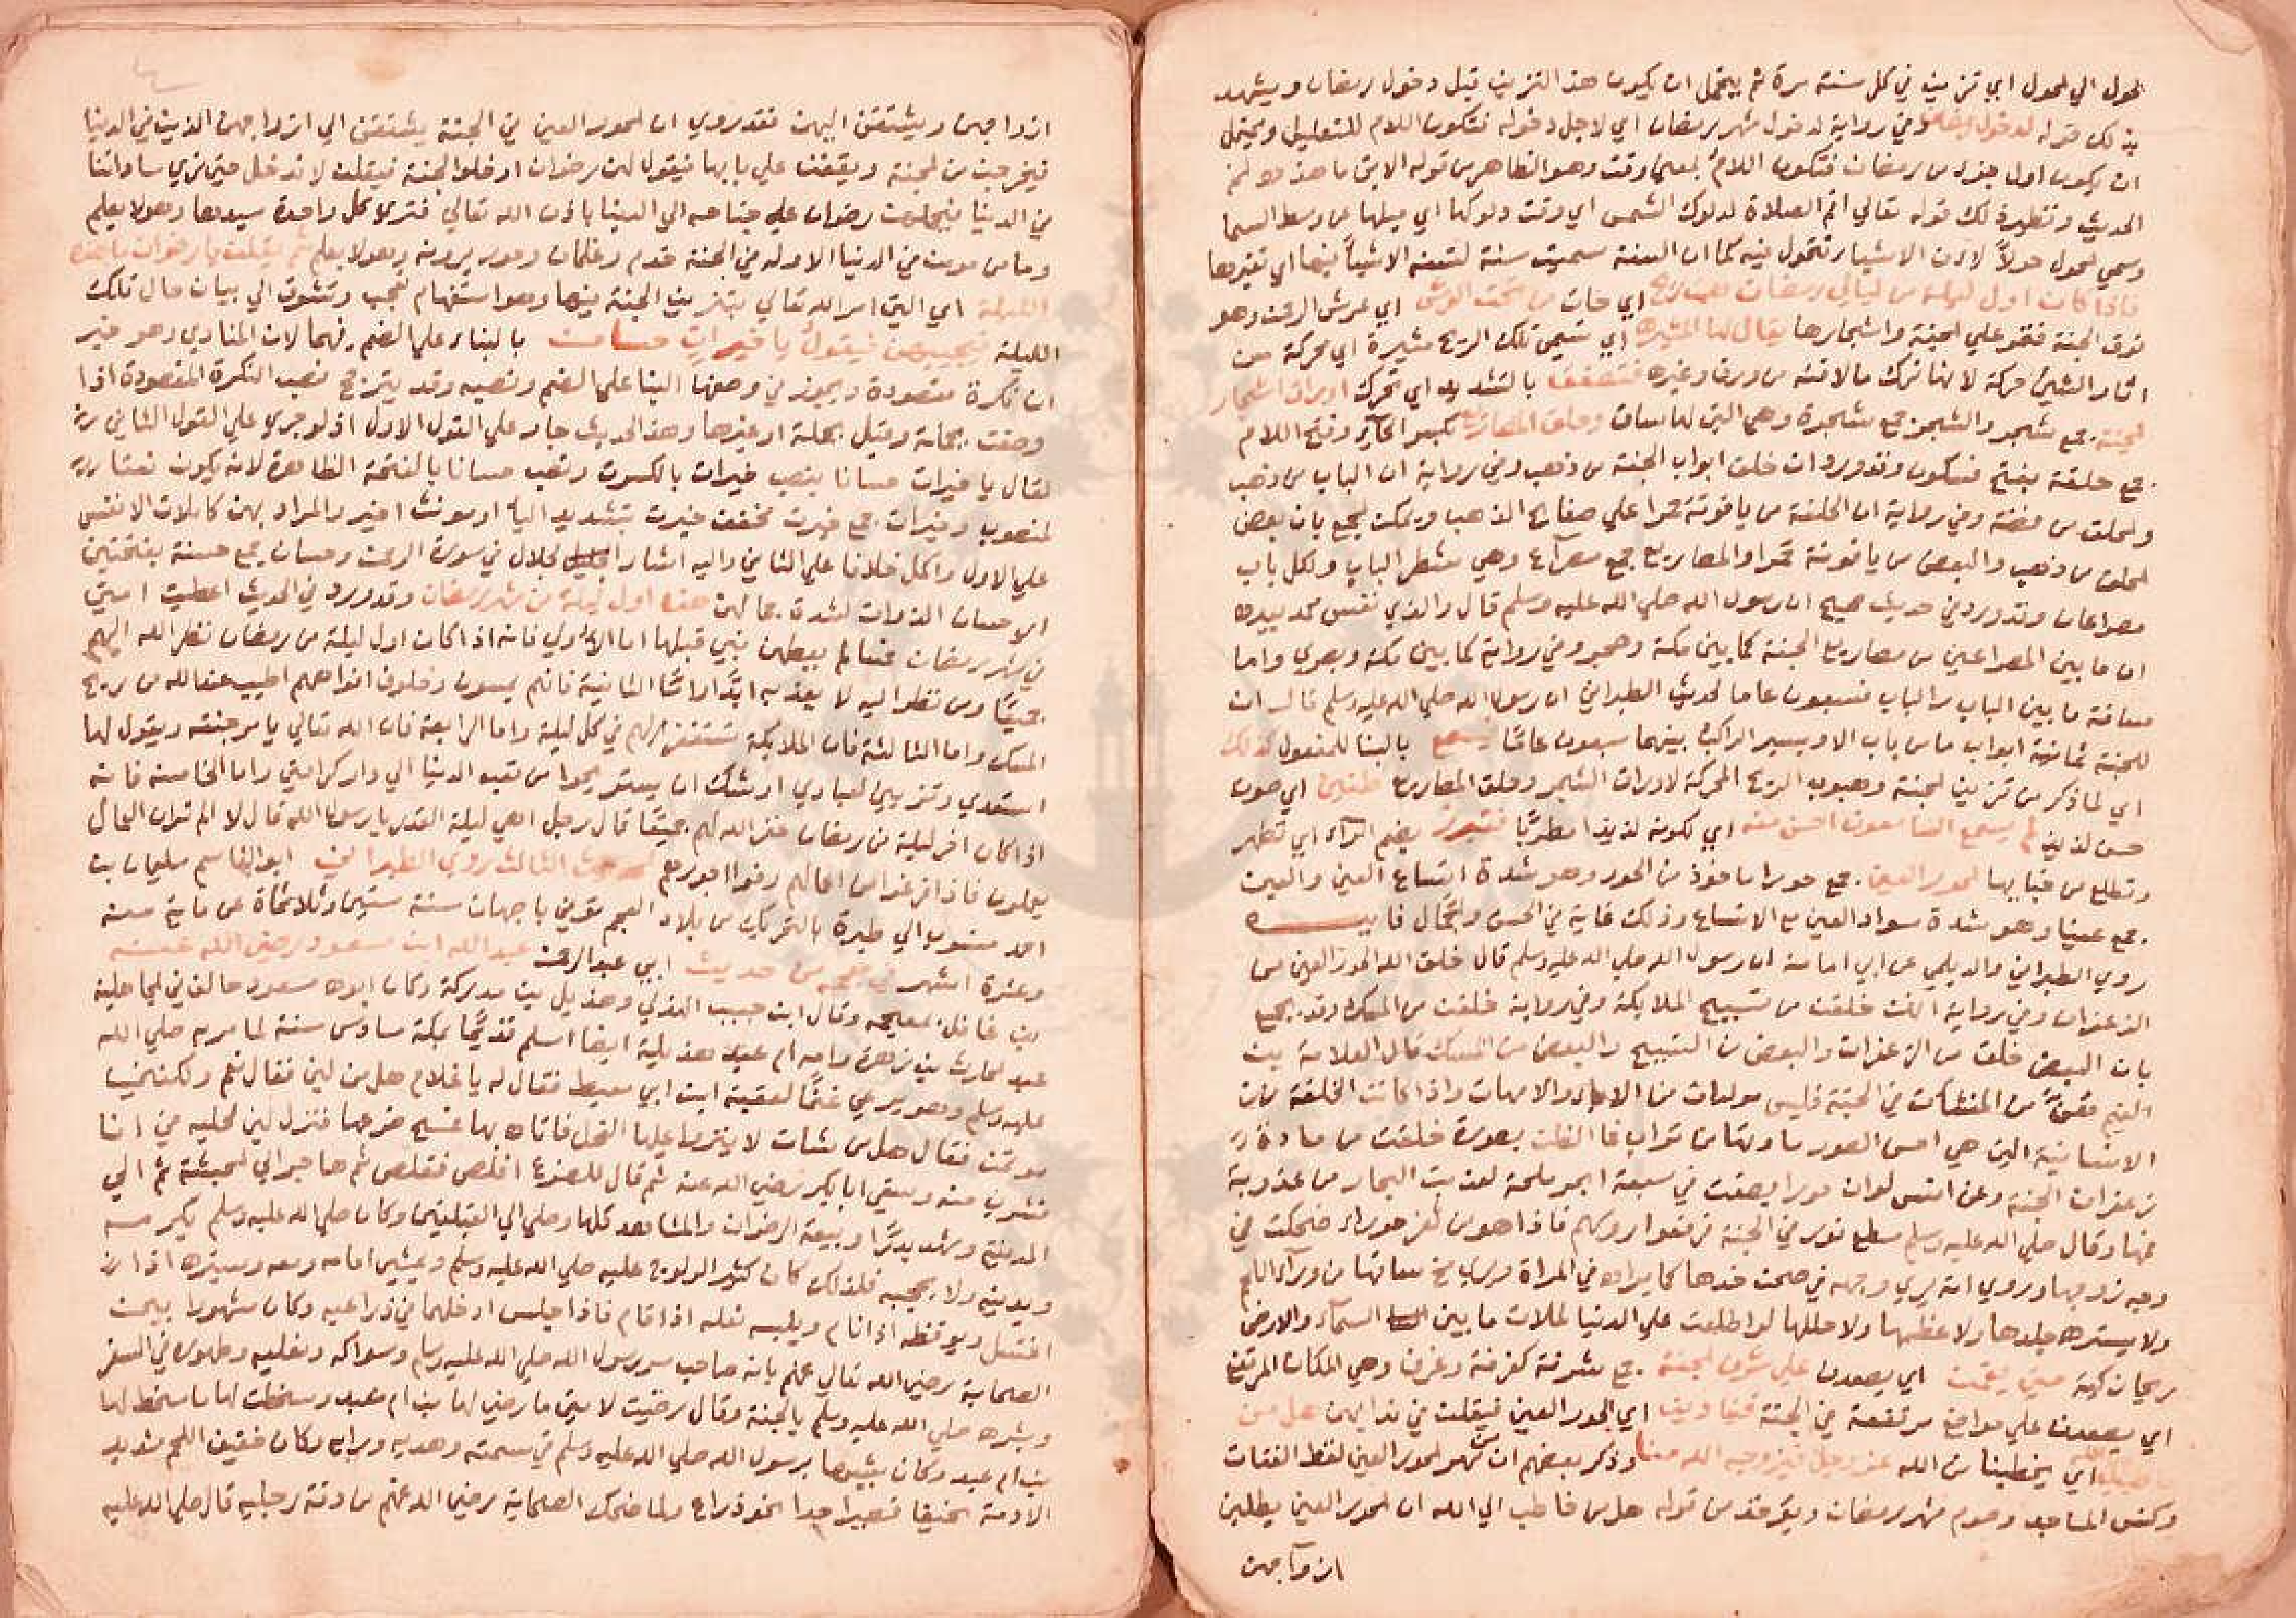 الحول الي الحول اي تزين في كل سنة مرة ثم يحتمل ان يكون هذا التزيين قبل دخول رمضان ويشهد
بذلك قوله لدخول رمضان وفي رواية لدخول شهر رمضان اي لاجل دخوله فتكون اللام للتعليل ويحتمل
ان يكون اول جزء من رمضان فتكون اللام بمعني وقت وهو الظاهر من قوله الاتي ما هذه
الحديث ونظيره لك قوله تعالي اقم الصلاة لدلوك الشمس اي وقت دلوكها اي ميلها عن وسط السما
وسمي الحول حولا لان الاشياء تتحول فيه كما ان السنة سميت سنة لتسنه الاشياء فيها اي تغيرها
فاذا كان اول ليلة من ليالي رمضان هبت ريح اي هات من تحت العرش اي عرش الرحمن وهو
فوق الجنة فتمر علي الجنة واشجارها يقال لها المثيرة اي تسمي تلك الريح مثيرة اي محركة من
اثار الشئ حركه لانها تحرك ما لاقته من ورق وغيره فتصفق بالتشديد اي تحرك اوراق اشجار
الجنة جمع شجر والشجر جمع شجرة وهي التي لها ساق وحلق المصاريع بكسر الحاء وفتح اللام
جمع حلقة بفتح فسكون وقد ورد ان حلق ابواب الجنة من ذهب وفي رواية ان الباب من ذهب
والحلق من فضة وفي رواية ان الحلقة من ياقوتة حمرا علي صفايح الذهب ويمكن الجمع بان بعض
الحلق من ذهب والبعض من ياقوتة حمرا والمصاريع جمع مصراع وهي شطر الباب ولكل باب
مصراعان وقد ورد في حديث صحيح ان رسول الله صلي الله عليه وسلم قال والذي نفس محمد بيده
ان ما بين المصراعين من مصاريع الجنة كما بين مكة وهجر وفي رواية كما بين مكة وبصري واما
مسافة ما بين الباب والباب فسبعون عاما لحديث الطبراني ان رسول الله صلي الله عليه وسلم قال ان
للجنة ثمانية ابواب ما من باب الا ويسير الراكب بينهما سبعون عاما يسمع بالبنا للمفعول لذلك
اي لما ذكر من تزيين الجنة وهبوب الريح المحركة لاوراق الشجر وحلق المصاريع طنين اي صوت
حسن لذيذ لم يسمع السامعون احسن منه اي لكونه لذيذا مطربا فتبرز بضم الراء اي تظهر
وتطلع من خبايها الحور العين جمع حورا ماخوذ من الحور وهو شدة اتساع العين والعين
جمع عينا وهو شدة سواد العين مع الاتساع وذلك غاية في الحسن والجمال فايدة
روي الطبراني والديلمي عن ابي امامة ان رسول الله صلي الله عليه وسلم قال خلق الله الحور العين من
الزعفران وفي رواية خلقت من تسبيح الملايكة وفي رواية خلقت من المسك وقد يجمع
بان البعض خلق من الزعفران والبعض من التسبيح والبعض من المسك قال العلامة بن
القيم من المنشآت في الجنة فليس مولدات من الاباء والامهات واذا كانت الخلقة
الانسانية التي هي احسن الصور مادتها من تراب فما الظن بصورة خلقت من مادة
زعفران الجنة وعن انس لو ان حورا بصقت في سبعة ابحر ملحة لعذبت البحار من عذوبة
فمها وقال صلي الله عليه وسلم سطع نور في الجنة فرفعوا روسهم فاذا هو من ثغر حوراء ضحكت في
وجه زوجها وروي انه ليري وجهه في صحن خدها كما يراه في المراة ويري مخ ساقها من وراء اللحم
ولا يستره جلدها ولا عظمها ولا حللها لو اطلعت علي الدنيا لملات ما بين السماء والارض
ريحا زكية حتي يقفن اي يصعدن علي شرف الجنة جمع شرفة كغرفة وغرف وهي المكان المرتفع
اي يصعدن علي مواضع مرتفعة في الجنة فينادين اي الحور العين فيقلن في ندايهن هل من
خاطب اي يخطبنا من الله عز وجل فيزوجه الله منا وذكر بعضهم ان من مهر الحور العين لقط الفتات
وكنس المساجد وصوم شهر رمضان ويؤخذ من قوله هل من خاطب الي الله ان الحور العين يطلبن
ازواجهن
ازواجهن ويشتقن اليهن فقد روي ان الحور العين في الجنة يشتقن الي ازواجهن الذين في الدنيا
فيخرجن من الجنة ويقفن علي بابها فيقول لهن رضوان ادخلوا الجنة فيقلن لا ندخل حتي نري ساداتنا
في الدنيا فيحملهن رضوان علي جناحه الي الدنيا باذن الله تعالي فتري كل واحدة سيدها وهو لا يعلم
وما من مومن في الدنيا الا وله في الجنة خدم وغلمان وحور يرونه وهو لا يعلم ثم يقلن يا رضوان ما هذه
الليلة اي التي امر الله تعالي بتزيين الجنة فيها وهو استفهام تعجب وتشوق الي بيان حال تلك
الليلة فيجيبهن فيقول يا خيرات حسان بالبناء علي الضم فيهما لان المنادي وهو خير
ات نكرة مقصودة ويجوز في وصفها البنا علي الضم ونصبه وقد يترجح نصب النكرة المقصودة اذا
وصفت بجملة وقيل بجملة او غيرها وهذا الحديث جاء علي القول الاول اذ لو جري علي القول الثاني
لقال يا خيرات حسانا بنصب خيرات بالكسرة ونصب حسانا بالفتحة الظاهرة لانه يكون نعتا
لمنصوب وخيرات جمع خيرة مخفف خيرة بتشديد الياء او مونث اخير والمراد بهن كاملات الانفس
علي الاول واكمل اخلاقا علي الثاني واليه اشار الجلال في سورة الرحمن وحسان جمع حسنة بفتحتين
اي حسان الذوات لشدة جمالهن هذه اول ليلة من شهر رمضان وقد ورد في الحديث اعطيت امتي
في شهر رمضان خمسا لم يعطهن نبي قبلها اما الاولي فانه اذا كان اول ليلة من رمضان نظر الله اليهم
جميعا ومن نظر اليه لا يعذبه ابدا واما الثانية فانهم يمسون وخلوف افواههم اطيب عند الله من ريح
المسك واما الثالثة فان الملايكة تستغفر لهم في كل ليلة واما الرابعة فان الله تعالي يامر جنته ويقول لها
استعدي وتزيني لعبادي اوشك ان يستريحوا من تعب الدنيا الي دار كرامتي واما الخامسة فانه
اذا كان اخر ليلة من رمضان غفر الله لهم جميعا فقال رجل اهي ليلة القدر يا رسول الله قال لا الم تر ان العمال
يعملون فاذا فرغوا من اعمالهم وفوا اجورهم الحديث الثالث روي الطبراني ابو القاسم سليمان بن
احمد منسوب الي طبرة بالتحريك من بلاد العجم توفي باصبهان سنة ستين وثلاثماة عن ماية سنة
وعشرة اشهر في معجمه من حديث ابي عبد الرحمن عبد الله ابن مسعود رضي الله عنه
بن غافل بمعجمة وقال ابن حبيب الهذلي وهذيل بن مدركة وكان ابوه مسعود حالف في الجاهلية
عبد الحارث بن زهرة وامه ام عبد هذلية ايضا اسلم قديما بمكة سادس ستة لما مر به صلي الله
عليه وسلم وهو يرعي غنما لعقبة ابن ابي معيط فقال له يا غلام هل من لبن فقال نعم ولكنني
موتمن فقال هل من شاة لا ينز عليها الفحل فاتاه بها فمسح ضرعها فنزل لبن فحلبه في انا
فشرب منه وسقي ابا بكر رضي الله عنه ثم قال للضرع اقلص فقلص ثم هاجر الي الحبشة ثم الي
المدينة وشهد بدرا وبيعة الرضوان والمشاهد كلها وصلي الي القبلتين وكان صلي الله عليه وسلم يكرمه
ويدنيه ولا يحجبه فلذلك كان كثير الولوج عليه صلي الله عليه وسلم ويمشي امامه ومعه ويستره اذا
اغتسل ويوقظه اذا نام ويلبسه نعله اذا قام فاذا جلس ادخلهما في ذراعيه وكان مشهورا بين
الصحابة رضي الله تعالي عنهم بانه صاحب سر رسول الله صلي الله عليه وسلم وسواكه ونعليه وطهوره في السفر
وبشره صلي الله عليه وسلم بالجنة وقال رضيت لامتي ما رضي لها بن ام عبد وسخطت لها ما سخط لها
بن ام عبد وكان يشبه برسول الله صلي الله عليه وسلم في سمته وهديه وكان خفيف اللحم شديد
الادمة نحيفا قصيرا جدا نحو ذراع ولما ضحك الصحابة رضي الله عنهم من دقة رجليه قال صلي الله عليه